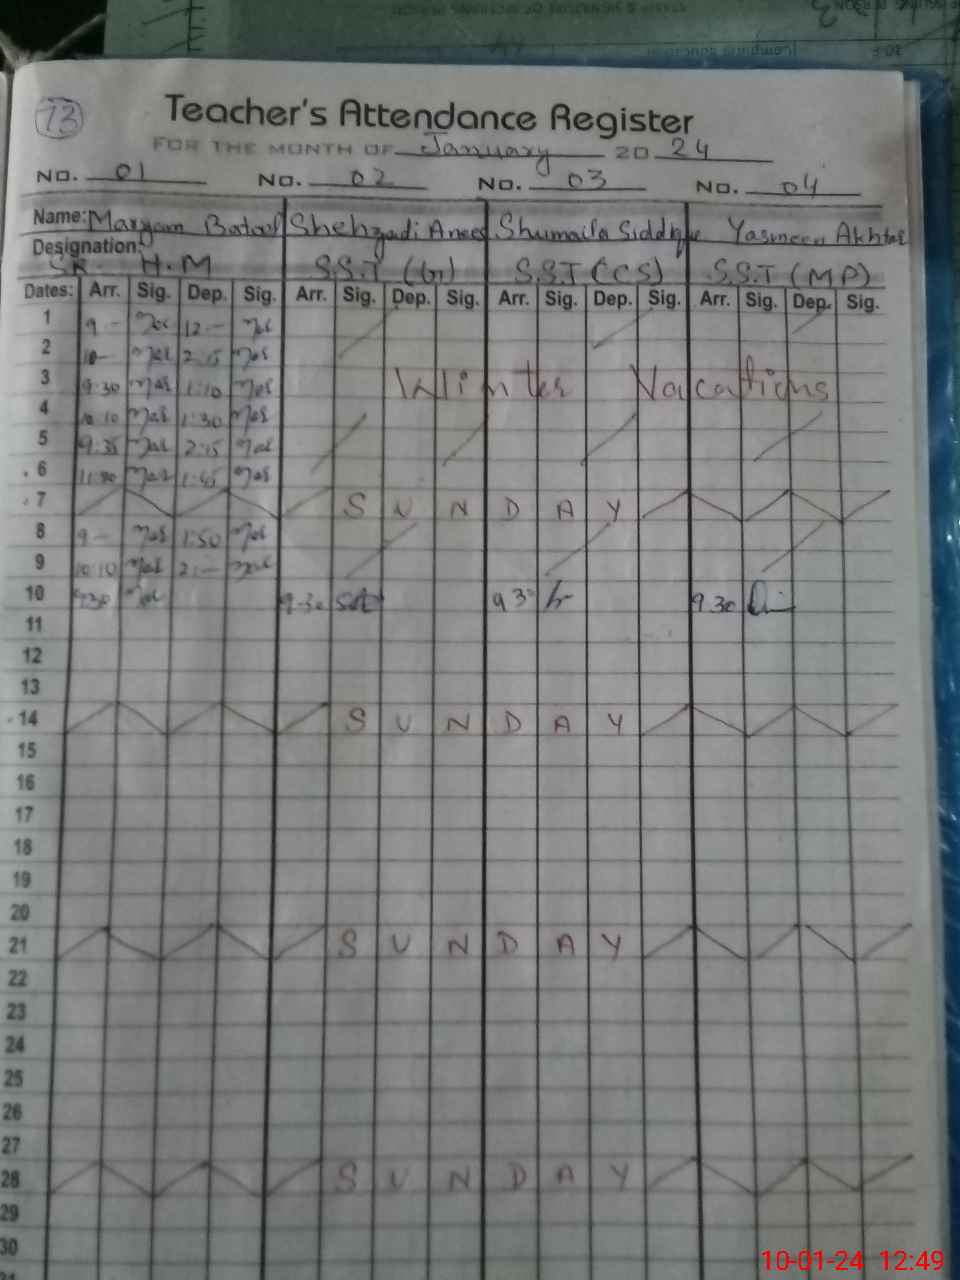 73
Teacher's Attendance Register
FOR THE MONTH OF January 20 24
NO. 01 NO. 02 NO. 03 NO. 04
Name: Maryam Batool Shehzadi Anees Shumaila Siddique Yasmeen Akhtar
Designation:
SR. H.M S.S.T (G) S.S.T (CS) S.S.T (MP)
Dates: Arr. Sig. Dep. Sig. Arr. Sig. Dep. Sig. Arr. Sig. Dep. Sig. Arr. Sig. Dep. Sig.
1 9 - 12 -
2 10- 2:15
3 9:30 1:10 Winter Vacations
4 10:10 1:30
5 9:35 2:15
6 11:30 1:45
7 S U N D A Y
8 9 - 1:50
9 10:10 2:-
10 9:30 9:30 9 30 9 30
11
12
13
14 S U N D A Y
15
16
17
18
19
20
21 S U N D A Y
22
23
24
25
26
27
28 S U N D A Y
29
30
10-01-24 12:49